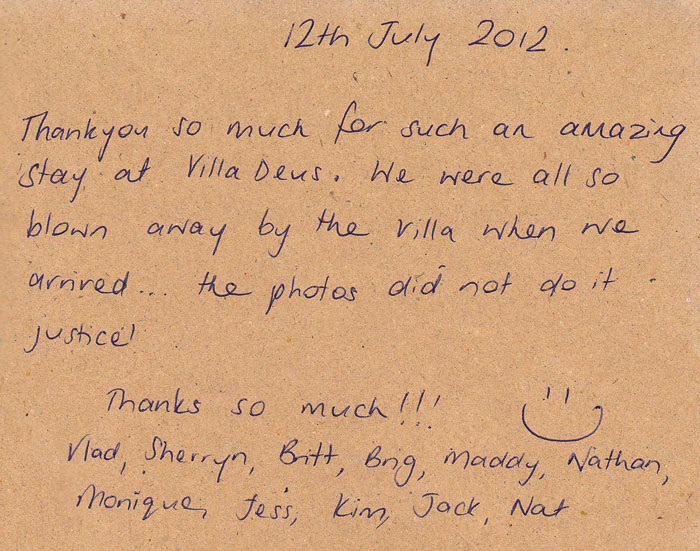 12th July 2012.
Thankyou so much for such an amazing
stay at Villa Deus. We were all so
blown away by the villa when we
arrived... the photos did not do it
justice!
Thanks so much!!!
Vlad, Sherryn, Britt, Brig, Maddy, Nathan,
Monique, Jess, Kim, Jack, Nat